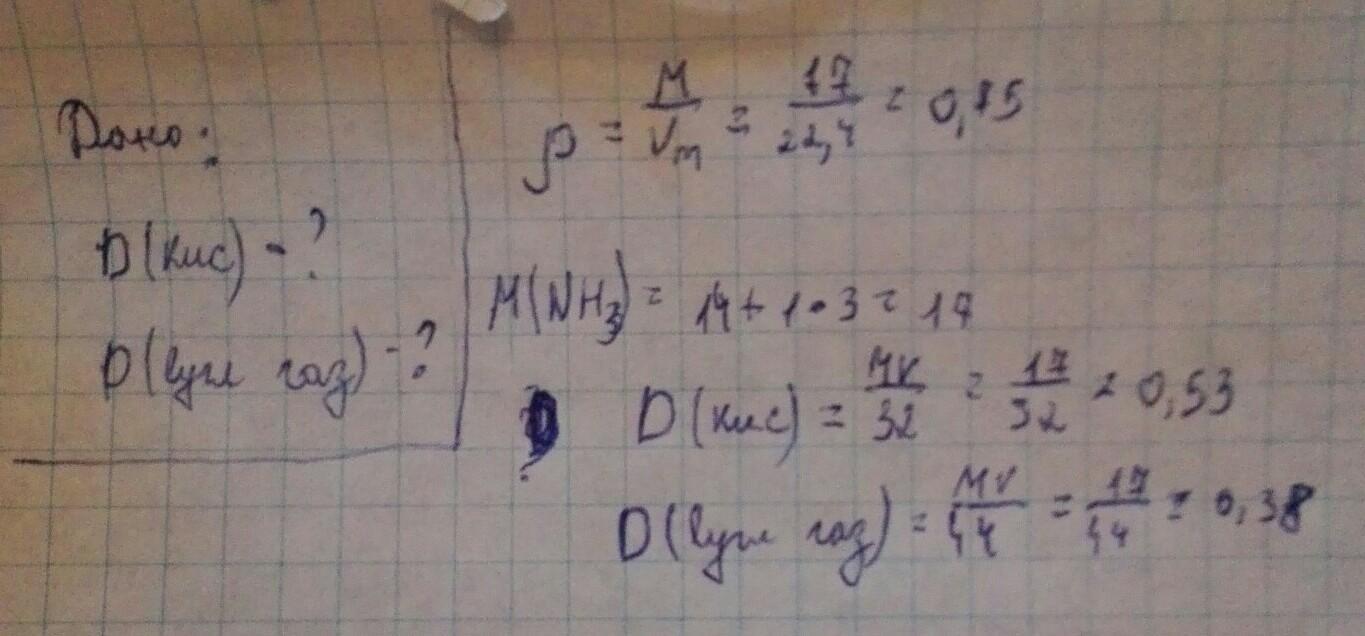 Дано:
D(кис) - ?
D(вугл газ) - ?
ρ = M/Vm = 17/22,4 = 0,75
M(NH3) = 14 + 1 • 3 = 17
D(кис) = MV/32 = 17/32 = 0,53
D(вугл газ) = MV/44 = 17/44 = 0,38